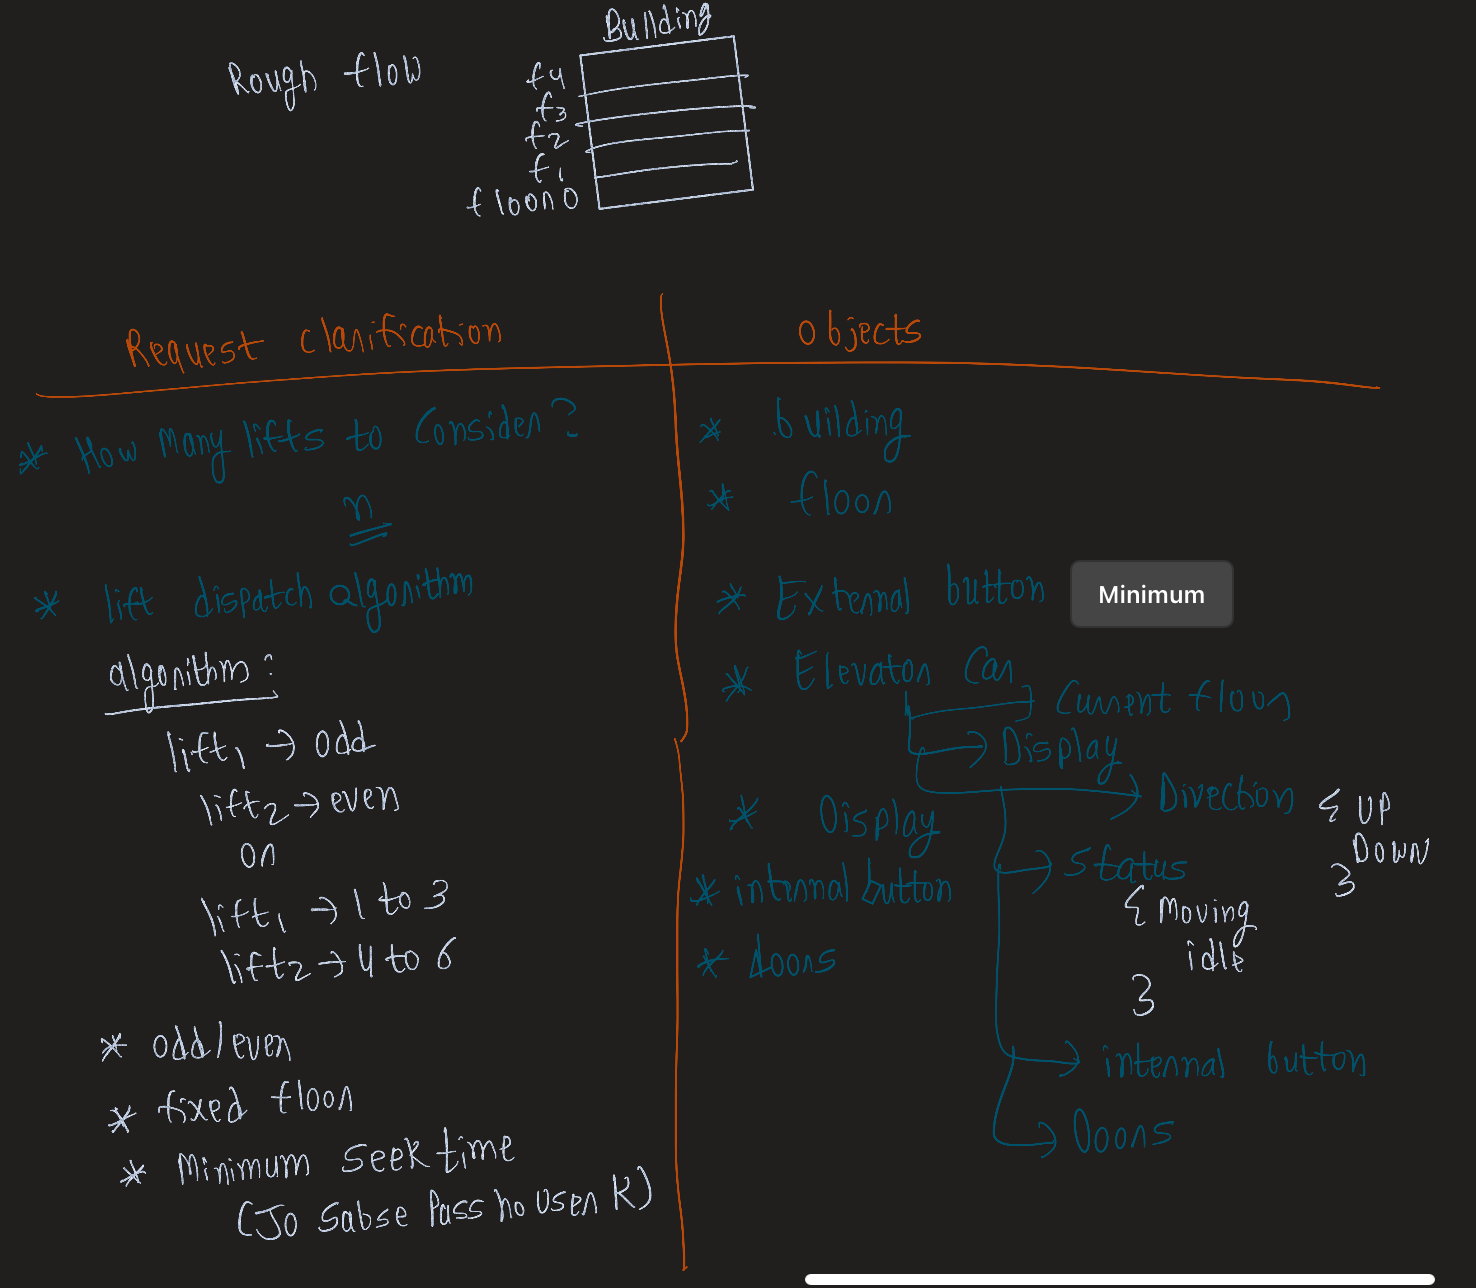 Building
Rough flow
f4
f3
f2
f1
floor 0
Request clarification
Objects
* How Many lifts to Consider?
n
* lift dispatch algorithm
algorithm:
lift1 → odd
lift2 → even
or
lift1 → 1 to 3
lift2 → 4 to 6
* odd/even
* fixed floor
* Minimum Seek time
(Jo Sabse Pass ho User K)
* building
* floor
* External button
Minimum
* Elevator Car
→ Current floor
→ Display
→ Direction { UP
DOWN
}
→ Status
{ Moving
idle
}
→ internal button
→ Doors
* Display
* internal button
* doors